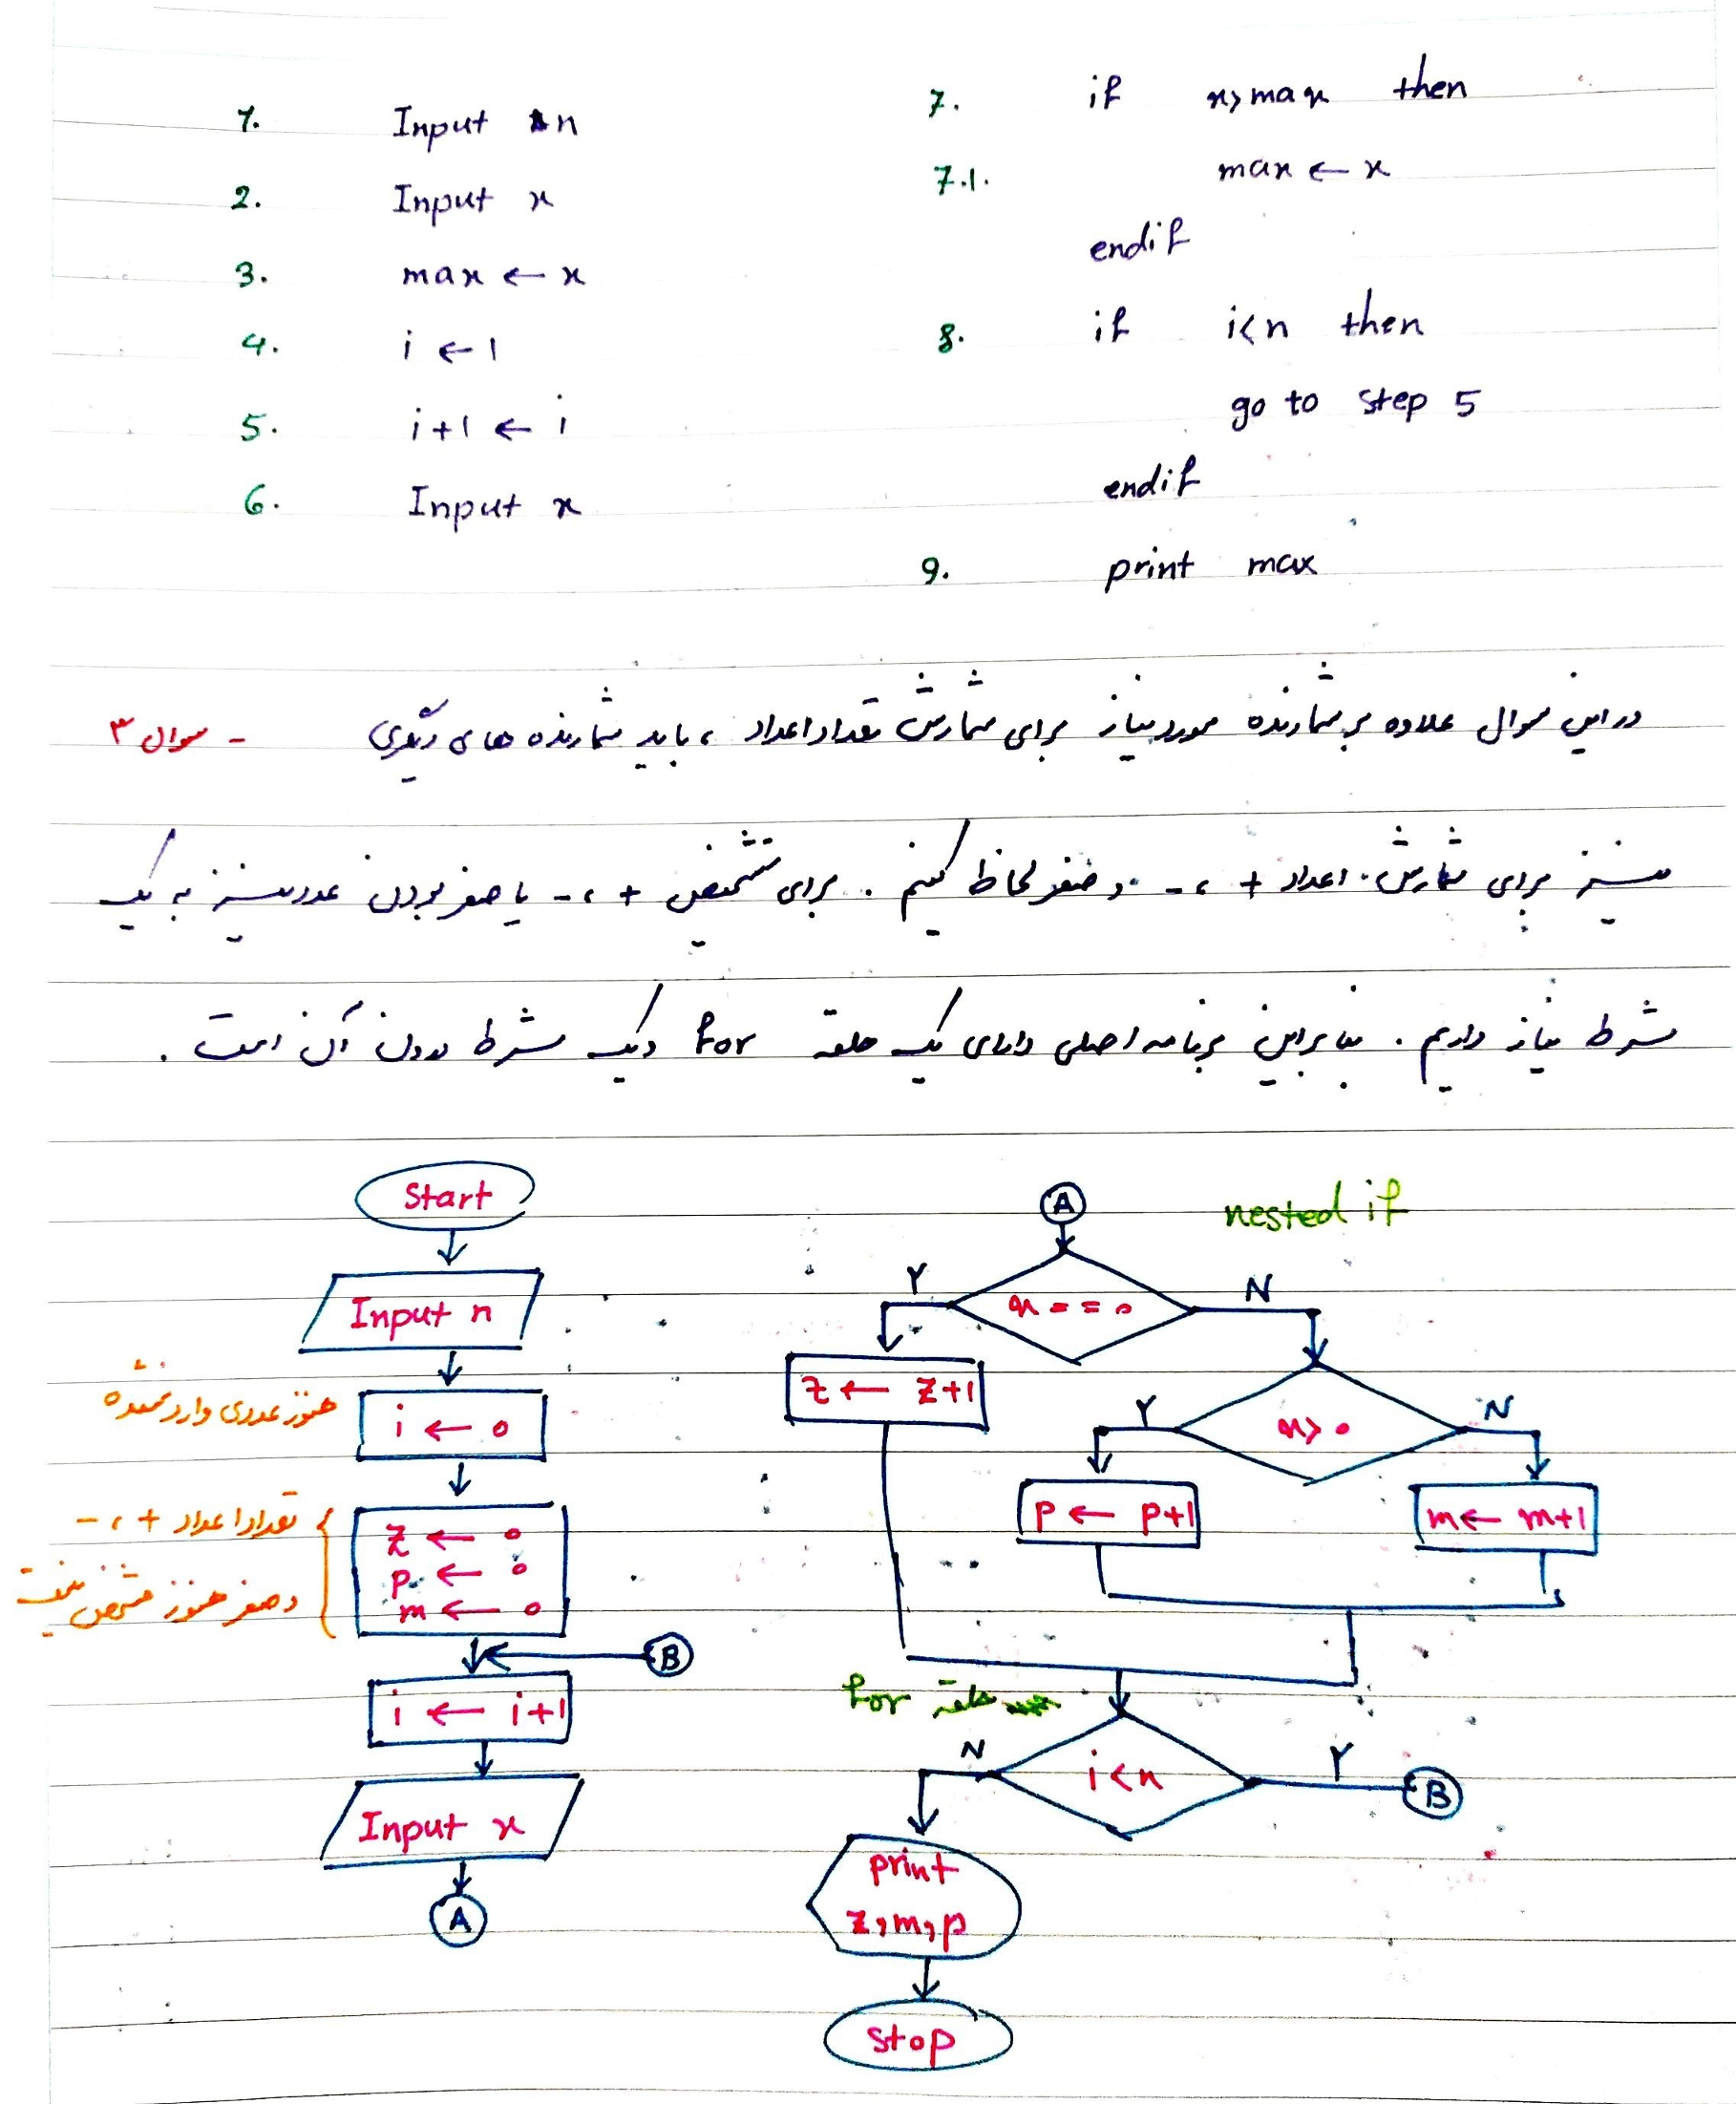 1. Input n
2. Input x
3. max ← x
4. i ← 1
5. i+1 ← i
6. Input x
7. if x>max then
7.1. max ← x
endif
8. if i<n then
go to step 5
endif
9. print max
سوال ۳ - در این سوال علاوه بر شمارنده مورد نیاز برای شمارش تعداد اعداد ، باید شمارنده های دیگری
نیز برای شمارش اعداد + ، - و صفر لحاظ کنیم . برای تشخیص + ، - یا صفر بودن عدد نیز به یک
شرط نیاز داریم . بنابراین برنامه اصلی دارای یک حلقه for و یک شرط درون آن است .
Start
Input n
هنوز عددی وارد نشده
i ← 0
تعداد اعداد + ، -
و صفر هنوز مشخص نیست
z ← 0
p ← 0
m ← 0
B
i ← i+1
Input x
A
A
nested if
x == 0
Y
N
z ← z+1
x > 0
Y
N
p ← p+1
m ← m+1
حلقه for
i<n
N
Y
B
print
z,m,p
stop